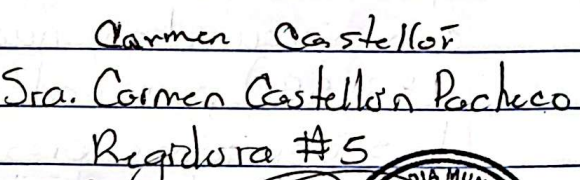 Carmen Castellon
Sra. Carmen Castellón Pacheco
Regidora #5
DIA MUN